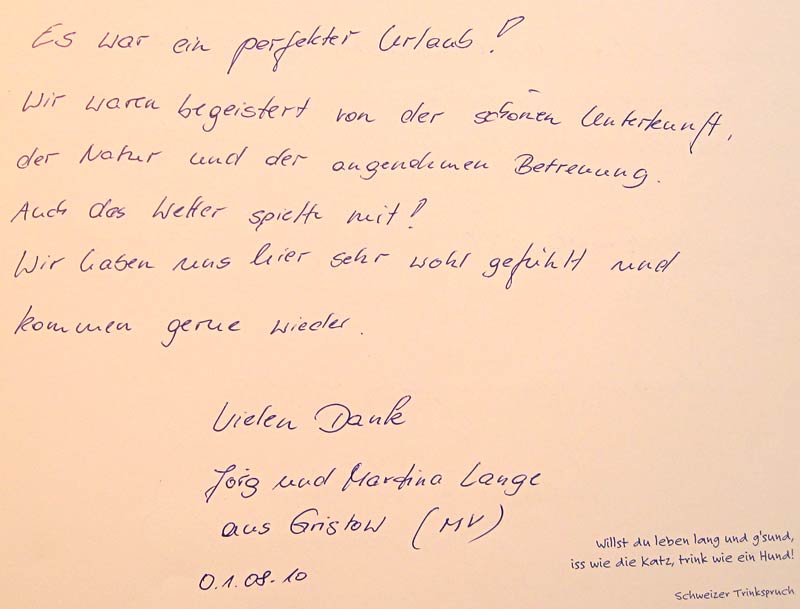 Es war ein perfekter Urlaub!
Wir waren begeistert von der schönen Unterkunft,
der Natur und der angenehmen Betreuung.
Auch das Wetter spielte mit!
Wir haben uns hier sehr wohl gefühlt und
kommen gerne wieder.
Vielen Dank
Jörg und Martina Lange
aus Gristow (MV)
01.08.10
Willst du leben lang und g'sund,
iss wie die Katz, trink wie ein Hund!
Schweizer Trinkspruch